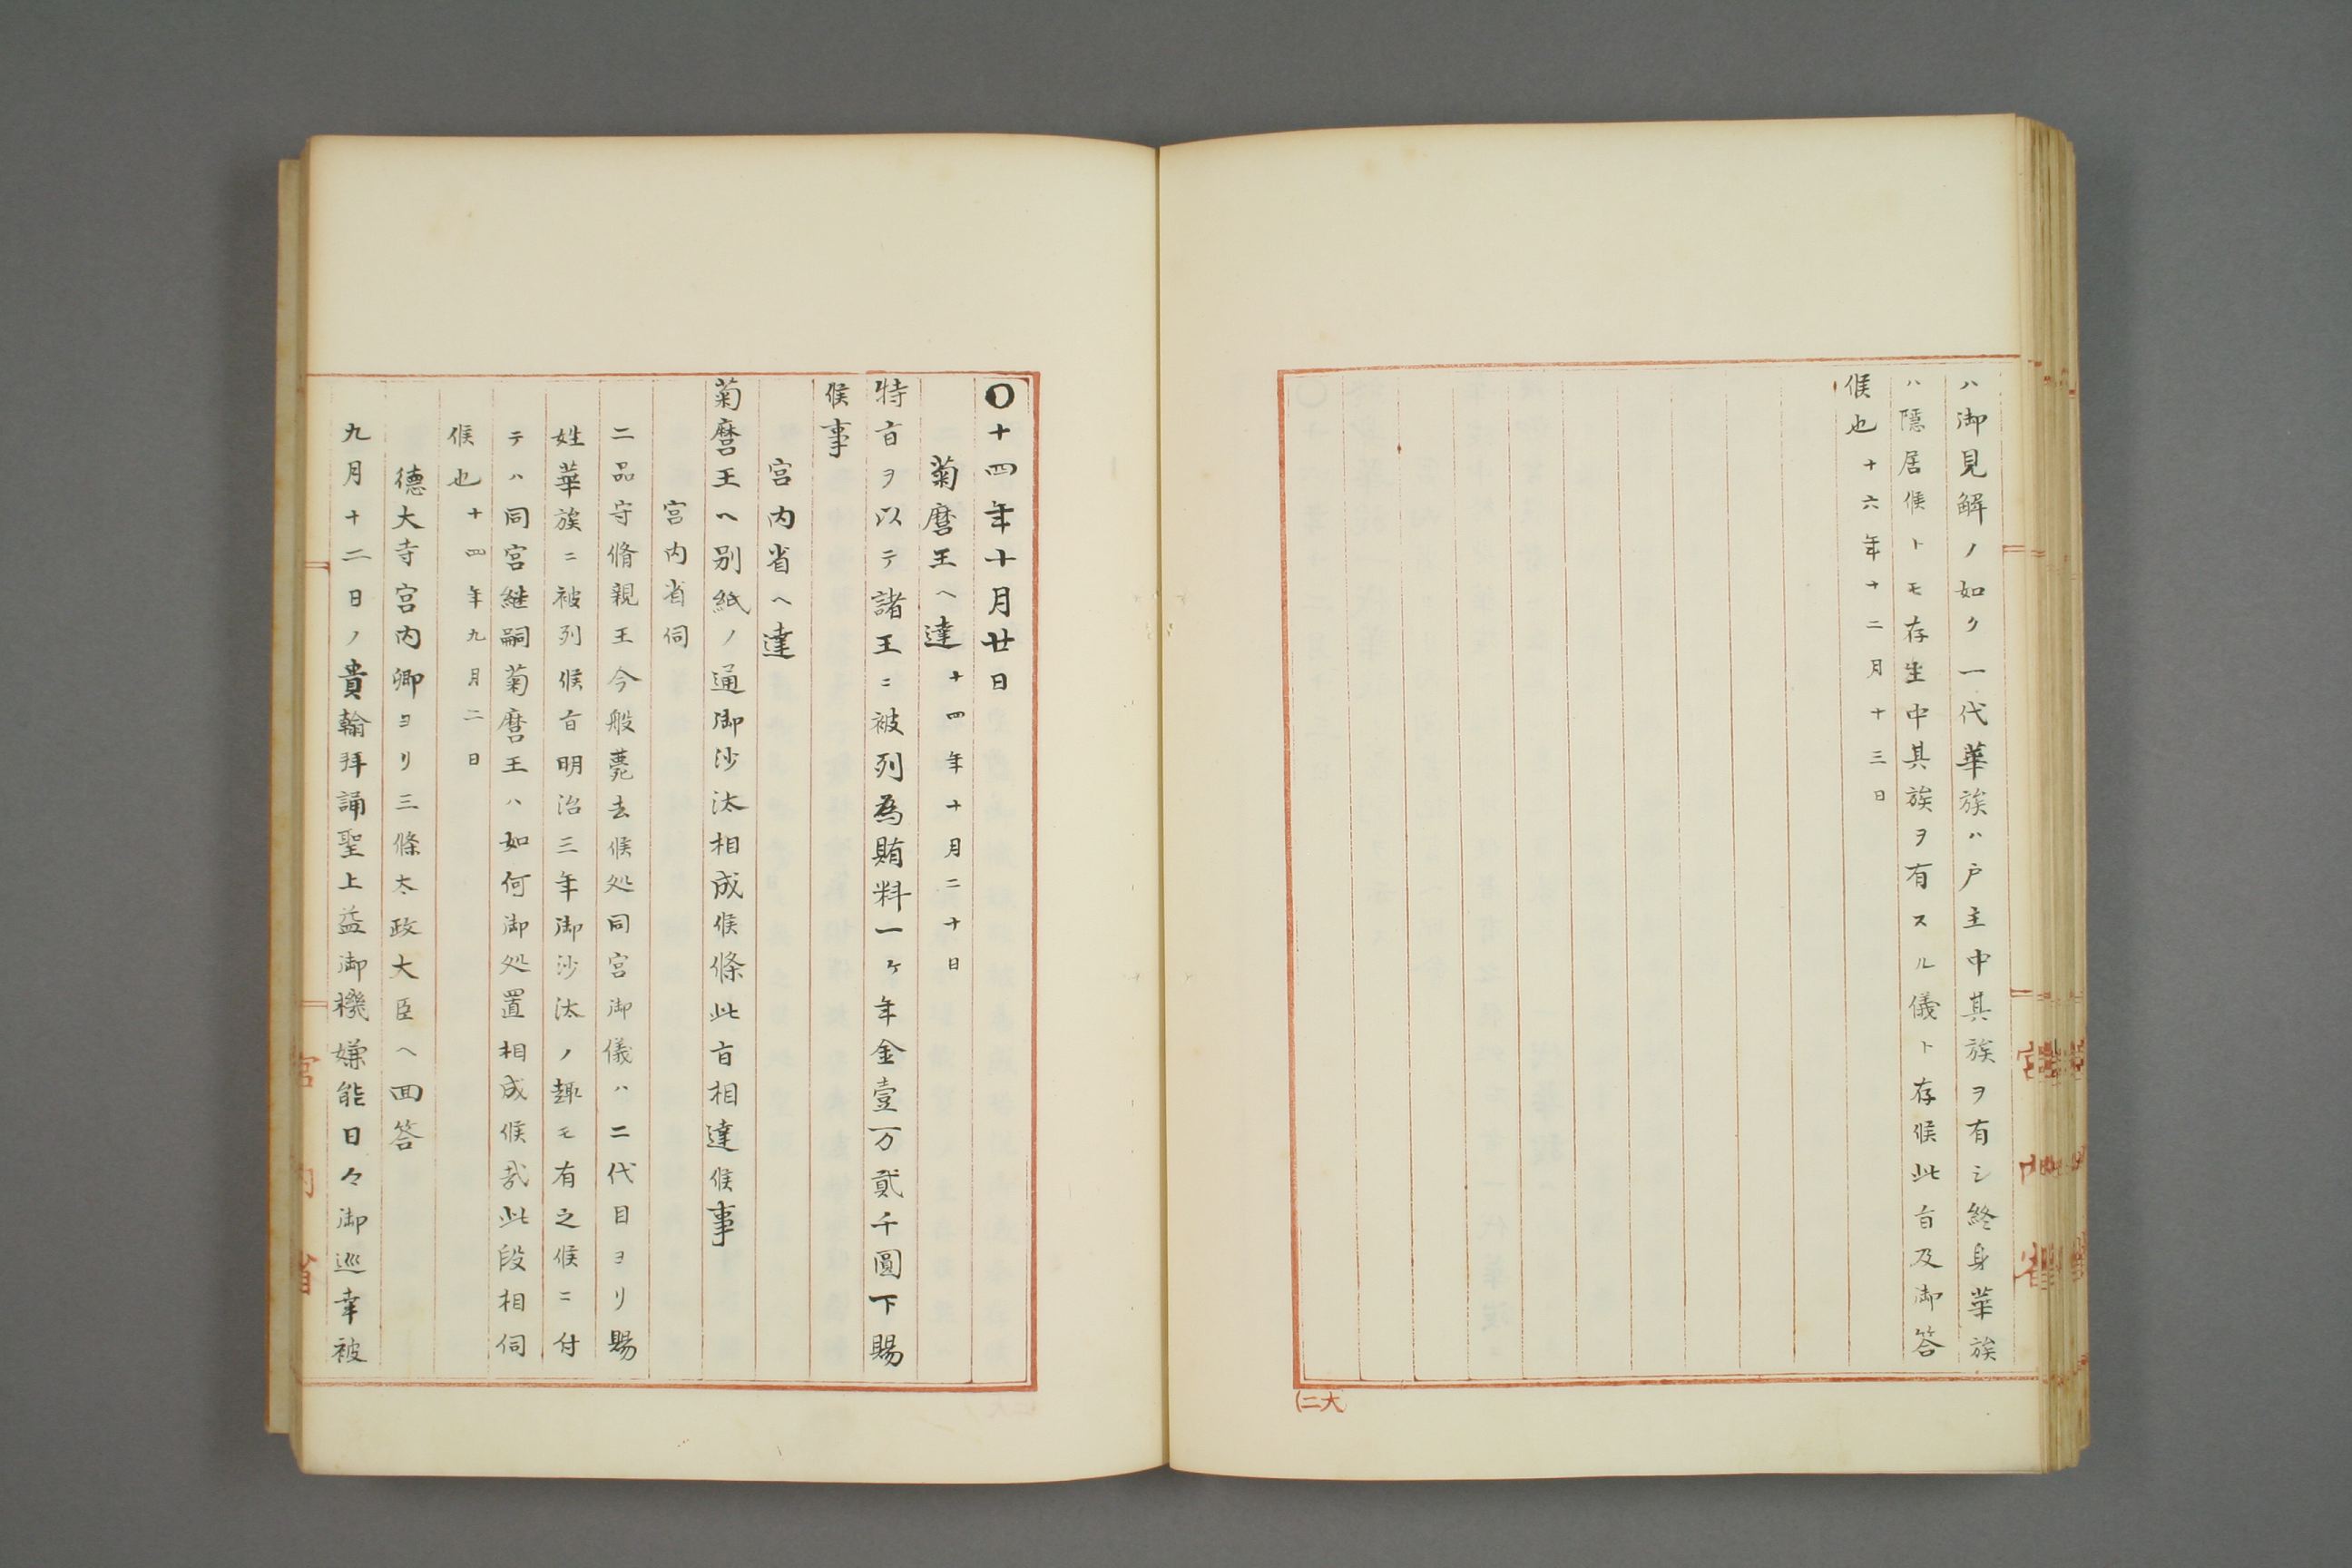 ハ御見解ノ如ク一代華族ハ戸主中其族ヲ有シ終身華族
ハ隠居候トモ存生中其族ヲ有スル儀ト存候此旨及御答
候也十六年十二月十三日
(二大
〇十四年十月廿日
菊麿王ヘ達十四年十月二十日
特旨ヲ以テ諸王ニ被列為賄料一ケ年金壹万貳千圓下賜
候事
宮内省ヘ達
菊麿王ヘ別紙ノ通御沙汰相成候條此旨相達候事
宮内省伺
二品守脩親王今般薨去候処同宮御儀ハ二代目ヨリ賜
姓華族ニ被列候旨明治三年御沙汰ノ趣モ有之候ニ付
テハ同宮継嗣菊麿王ハ如何御処置相成候哉此段相伺
候也十四年九月二日
徳大寺宮内卿ヨリ三條太政大臣ヘ回答
九月十二日ノ貴翰拜誦聖上益御機嫌能日々御巡幸被
宮内省